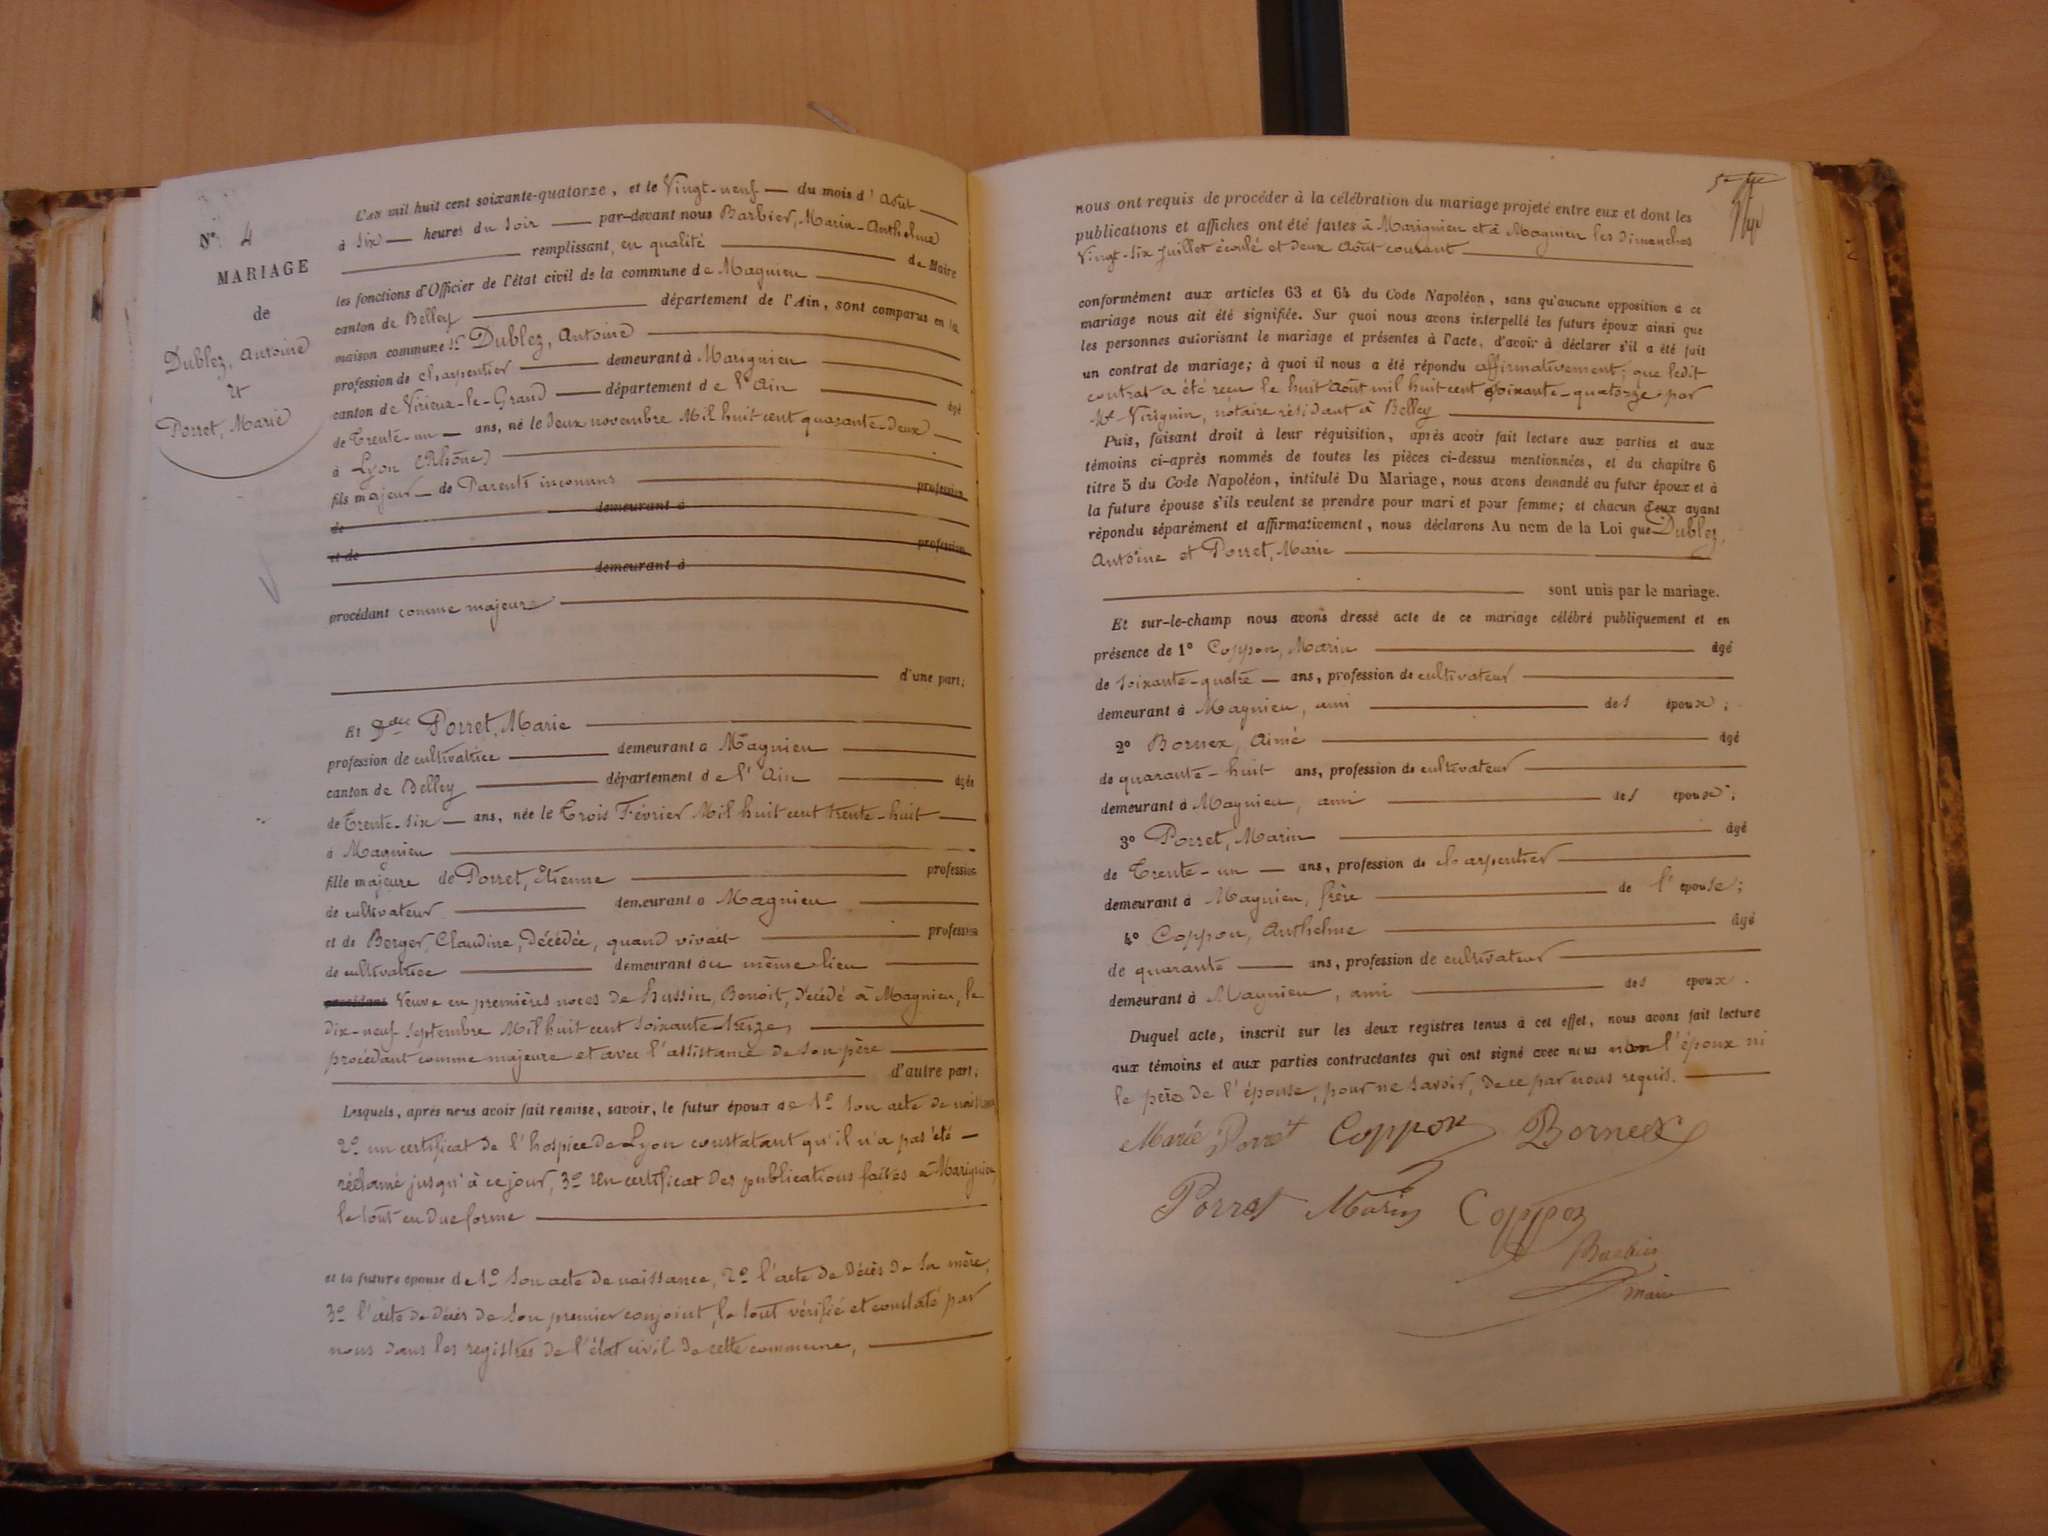 N° 4
MARIAGE
de
Dublez, Antoine
et
Porret, Marie
L'an mil huit cent soixante-quatorze, et le Vingt-neuf du mois d'Août
à six heures du soir par-devant nous Barbier, Marin-Anthelme
remplissant, en qualité de Maire
les fonctions d'Officier de l'état civil de la commune de Magnieu
canton de Belley département de l'Ain, sont comparus en la
maison commune Sr Dublez, Antoine
profession de charpentier demeurant à Marignieu
canton de Virieux-le-Grand département de l'Ain âgé
de Trente-un ans, né le deux novembre Mil huit cent quarante-deux
à Lyon (Rhône)
fils majeur de Parents inconnus profession
de demeurant à
et de profession
demeurant à
procédant comme majeur
d'une part;
Et Dlle Porret, Marie
profession de cultivatrice demeurant à Magnieu
canton de Belley département de l'Ain âgée
de Trente-six ans, née le Trois Février Mil huit cent trente-huit
à Magnieu
fille majeure de Porret, Etienne profession
de cultivateur demeurant à Magnieu
et de Berger, Claudine, décédée, quand vivait profession
de cultivatrice demeurant au même lieu
procédant Veuve en premières noces de Hussin, Benoit, décédé à Magnieu, le
dix-neuf septembre Mil huit cent soixante-treize,
procédant comme majeure et avec l'assistance de son père
d'autre part;
Lesquels, après nous avoir fait remise, savoir, le futur époux de 1° son acte de naissance
2° un certificat de l'hospice de Lyon constatant qu'il n'a pas été
réclamé jusqu'à ce jour, 3° un certificat des publications faites à Marignieu
le tout en due forme
et la future épouse de 1° son acte de naissance, 2° l'acte de décès de sa mère,
3° l'acte de décès de son premier conjoint, le tout vérifié et constaté par
nous dans les registres de l'état civil de cette commune,
nous ont requis de procéder à la célébration du mariage projeté entre eux et dont les
publications et affiches ont été faites à Marignieu et à Magnieu les dimanches
Vingt-six Juillet écoulé et deux Août courant
conformément aux articles 63 et 64 du Code Napoléon, sans qu'aucune opposition à ce
mariage nous ait été signifiée. Sur quoi nous avons interpellé les futurs époux ainsi que
les personnes autorisant le mariage et présentes à l'acte, d'avoir à déclarer s'il a été fait
un contrat de mariage; à quoi il nous a été répondu affirmativement; que ledit
contrat a été reçu le huit Août mil huit cent soixante-quatorze par
Me Viriguin, notaire résidant à Belley
Puis, faisant droit à leur réquisition, après avoir fait lecture aux parties et aux
témoins ci-après nommés de toutes les pièces ci-dessus mentionnées, et du chapitre 6
titre 5 du Code Napoléon, intitulé Du Mariage, nous avons demandé au futur époux et à
la future épouse s'ils veulent se prendre pour mari et pour femme; et chacun d'eux ayant
répondu séparément et affirmativement, nous déclarons Au nom de la Loi que Dublez,
Antoine et Porret, Marie
sont unis par le mariage.
Et sur-le-champ nous avons dressé acte de ce mariage célébré publiquement et en
présence de 1° Coppon, Marin âgé
de soixante-quatre ans, profession de cultivateur
demeurant à Magnieu, ami des époux;
2° Bornex, Aimé âgé
de quarante-huit ans, profession de cultivateur
demeurant à Magnieu, ami des époux;
3° Porret, Marin âgé
de Trente-un ans, profession de charpentier
demeurant à Magnieu, frère de l'épouse;
4° Coppon, Anthelme âgé
de quarante ans, profession de cultivateur
demeurant à Magnieu, ami des époux.
Duquel acte, inscrit sur les deux registres tenus à cet effet, nous avons fait lecture
aux témoins et aux parties contractantes qui ont signé avec nous non l'époux ni
le père de l'épouse, pour ne savoir, de ce par nous requis.
Marie Porret Coppon Bornex
Porret Marin Coppon
Barbier
maire